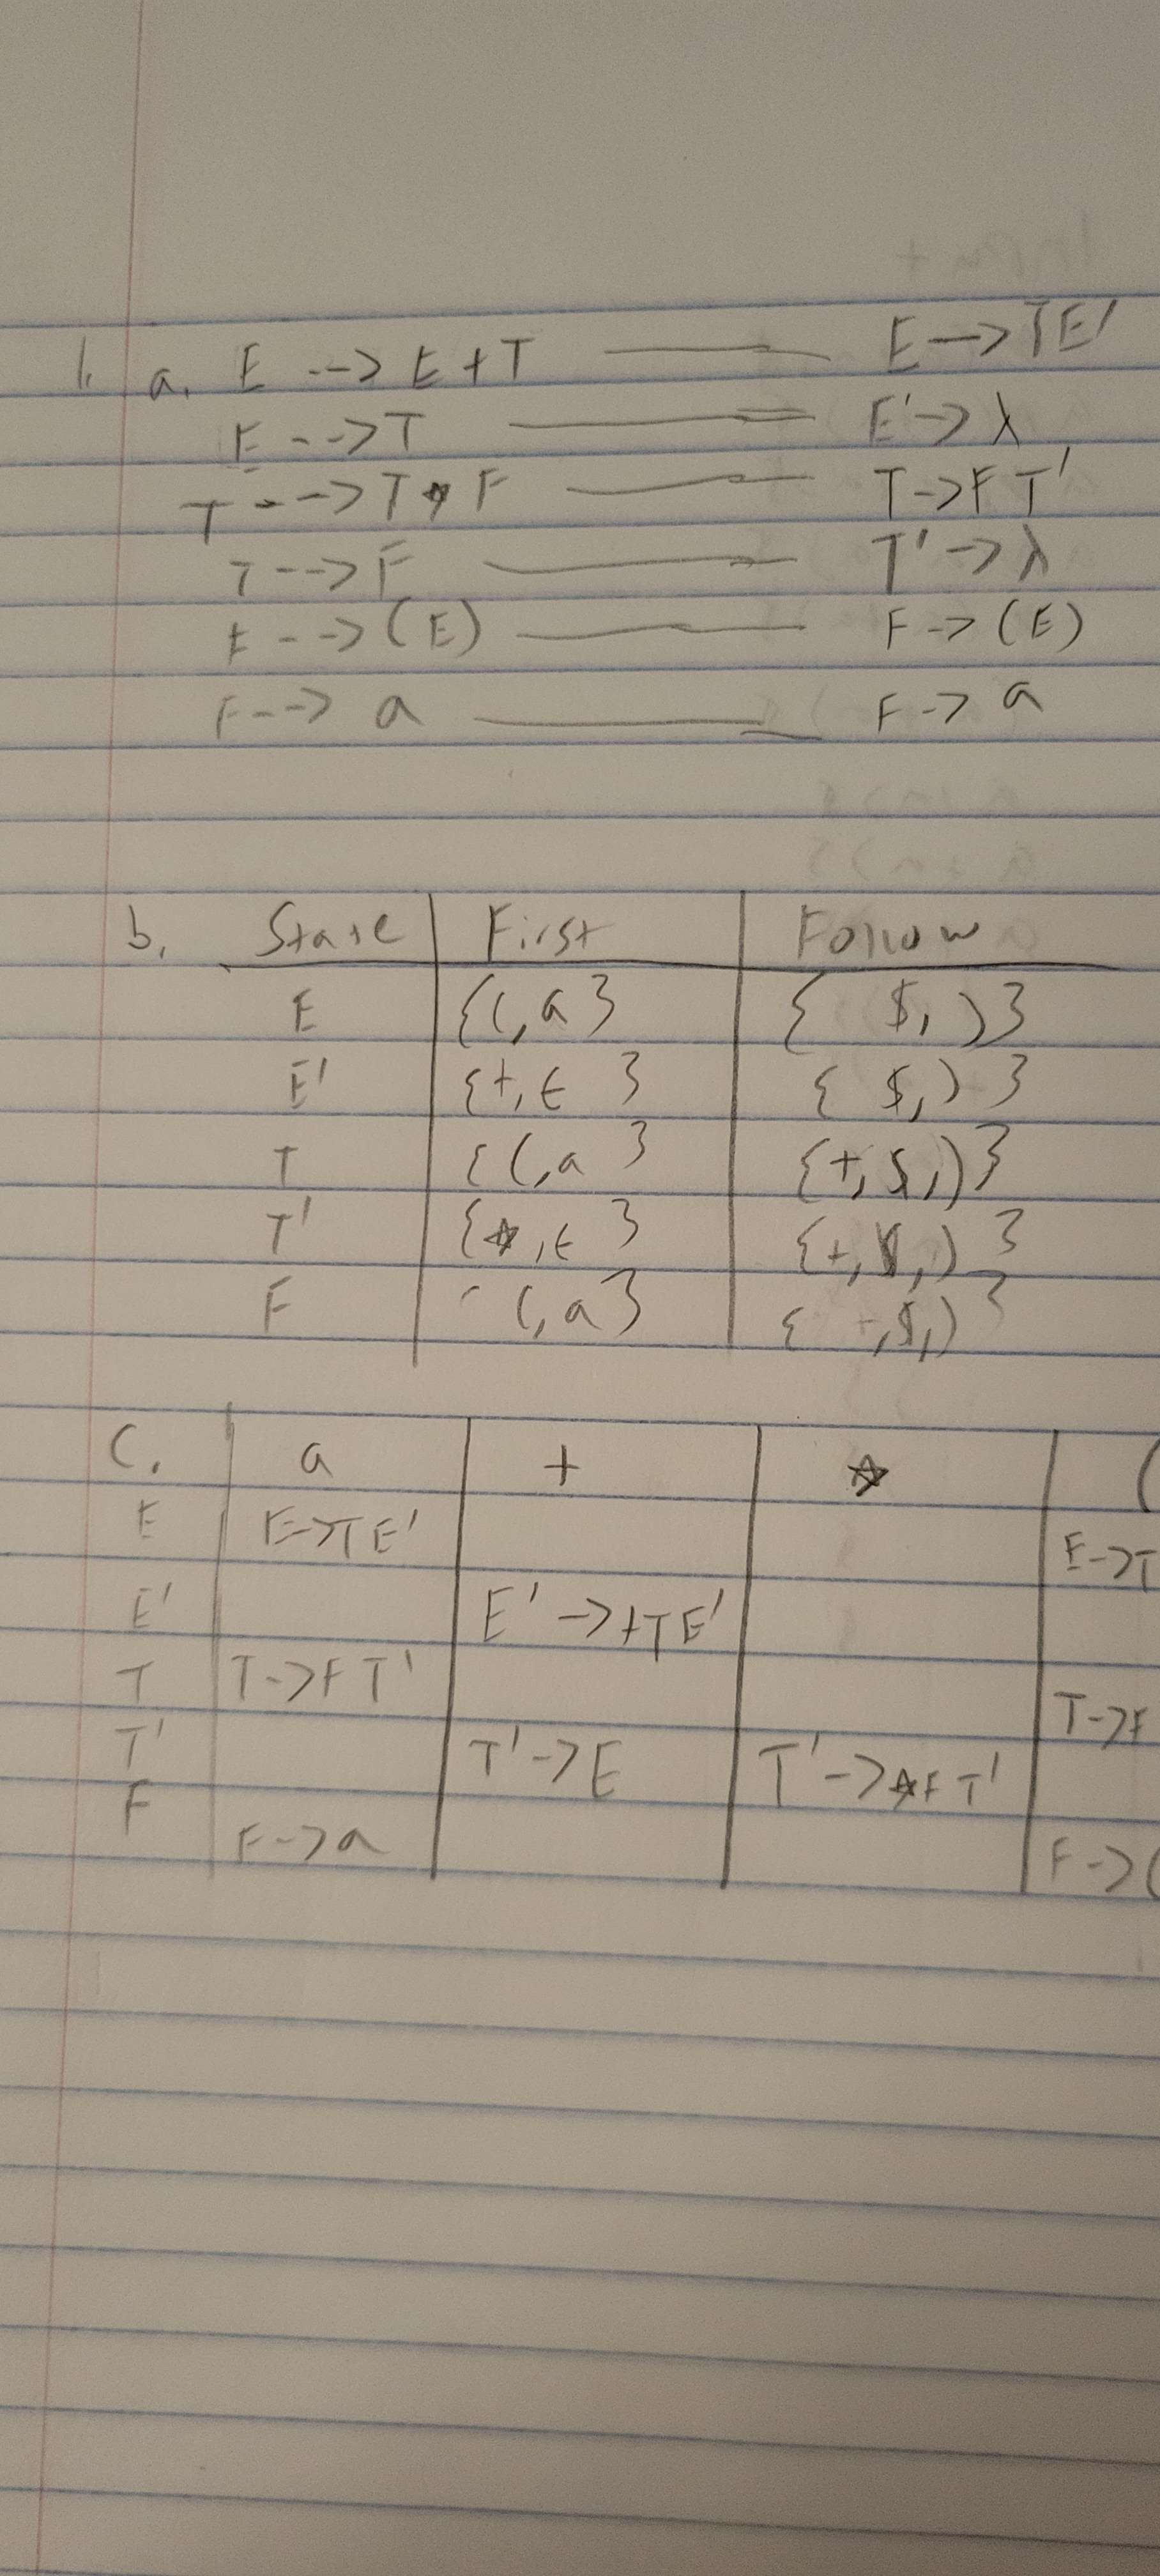 1. a. E --> E + T —— E -> TE'
E --> T —— E' -> λ
T --> T * F —— T -> F T'
T --> F —— T' -> λ
F --> (E) —— F -> (E)
F --> a —— F -> a
b. State First Follow
E {(, a} { $, )}
E' {+, ε } { $, ) }
T { (, a } {+, $, )}
T' {*, ε } {+, $, ) }
F (, a} { +, $, ) }
C. a + * (
E E->TE' E->T
E' E' -> +TE'
T T->F T' T->F
T' T' -> E T' -> *F T'
F F -> a F -> (